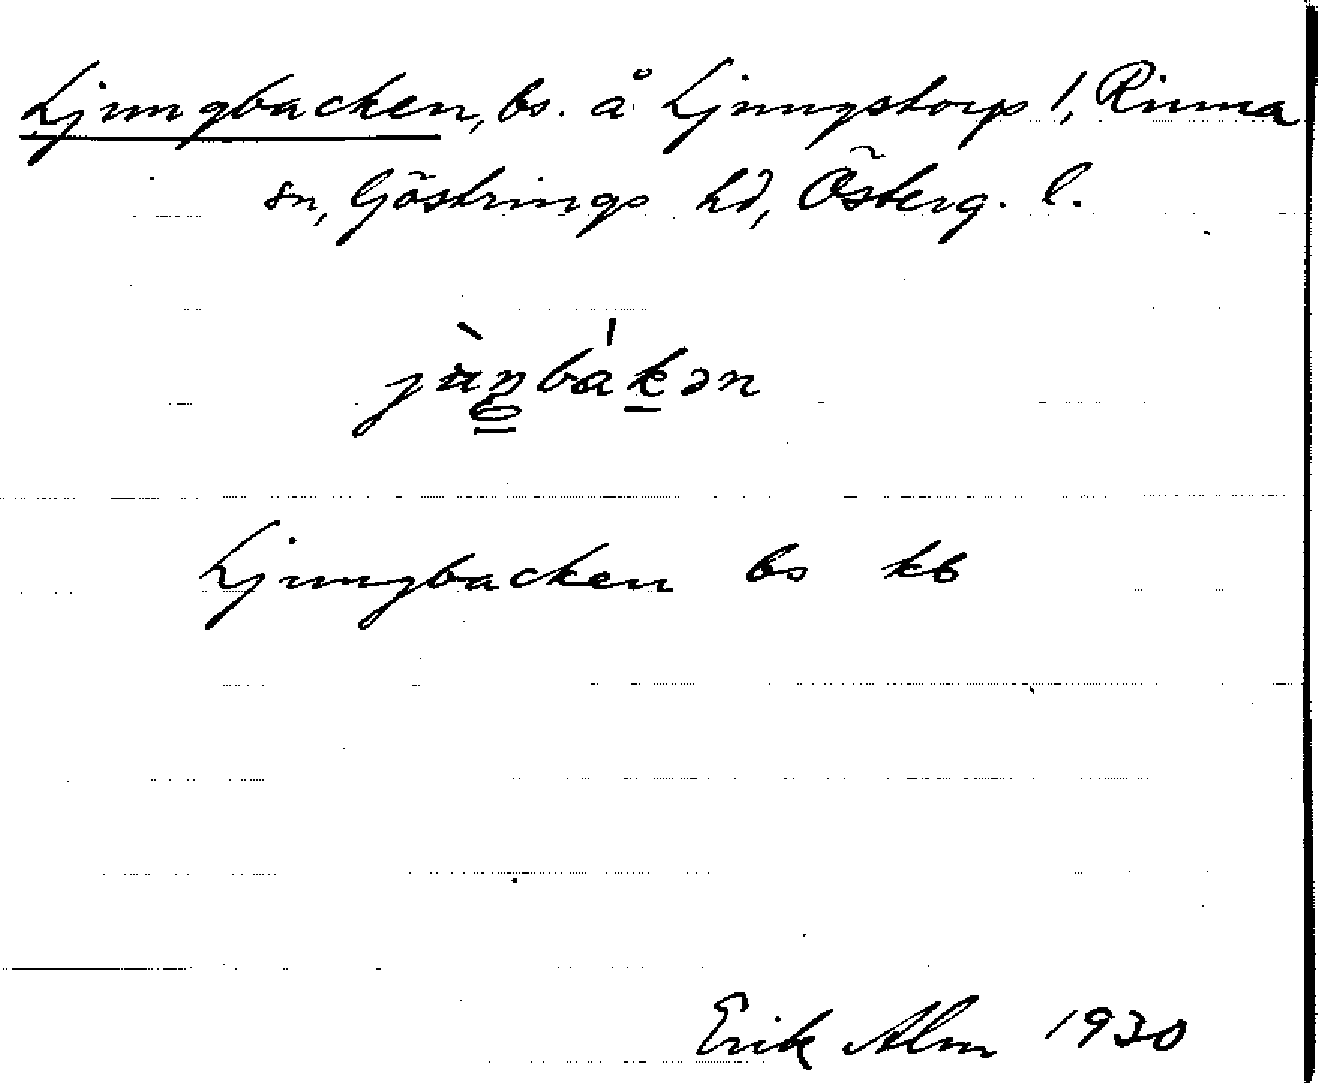 Ljungbacken, bs. å Ljungstorp 1, Rinna
sn, Göstrings hd, Österg. l.
jùŋbákən
Ljungbacken bs kb
Erik Alm 1930